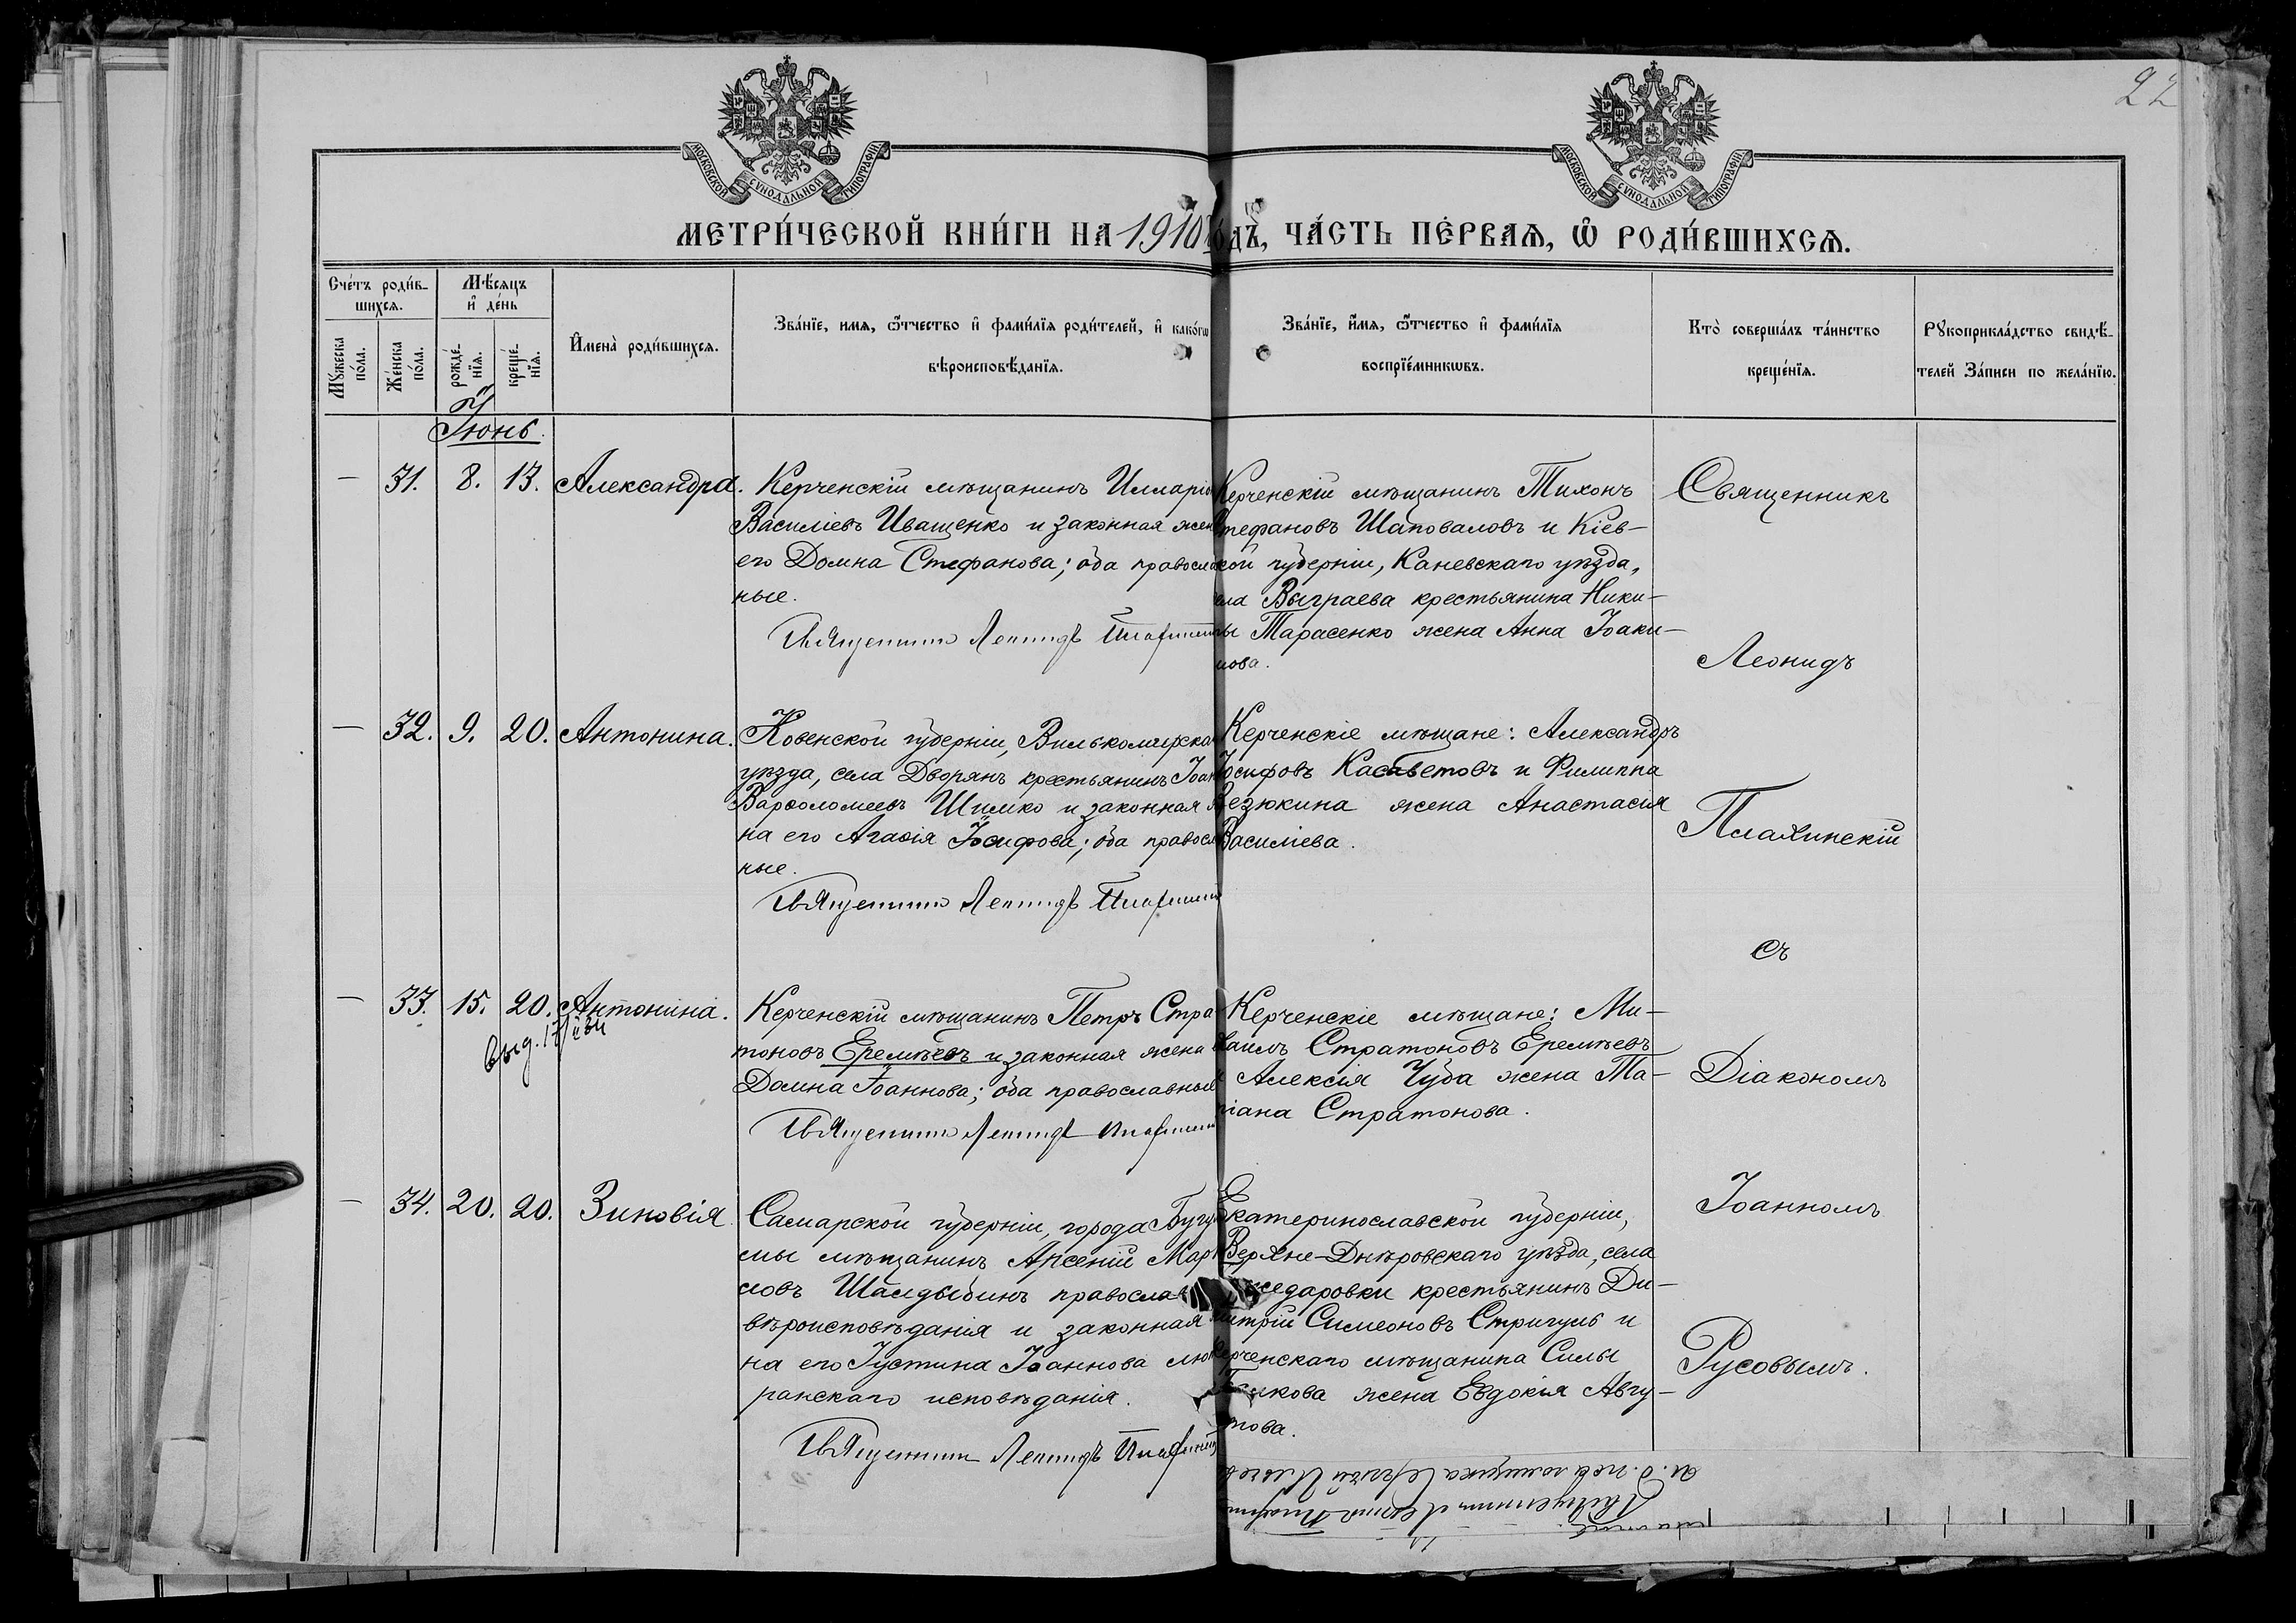 22
МОСКОВСКОЙ СѴНОДАЛЬНОЙ ТИПОГРАФІИ
МОСКОВСКОЙ СѴНОДАЛЬНОЙ ТИПОГРАФІИ
МЕТРИ́ЧЕСКОЙ КНИ́ГИ НА 1910 годъ, ЧА́СТЬ ПЕ́РВАѦ, Ѡ РОДИ́ВШИХСѦ.
Сче́тъ роди́в-
шихсѧ.
Мѣ́сяцъ
и҆ де́нь
Мꙋжеска
по́ла.
Же́нска
по́ла.
рожде́-
нїѧ.
креще́-
нїѧ.
И҆мена̀ роди́вшихсѧ.
Зва́нїе, имѧ, ѿтчество и҆ фами́лїѧ роди́телей, и҆ како́гѡ
вѣроисповѣ́данїѧ.
Зва́нїе, и҆́мѧ, ѿтчество и҆ фами́лїѧ
воспрїе́мникѡвъ.
Кто̀ соверша́лъ та́инство
креще́нїѧ.
Рꙋкоприкла́дство свидѣ́-
телей За́писи по жела́нїю.
Іюнь.
— 31. 8. 13. Александра.
Керченскій мѣщанинъ Илларіо
Василіевъ Иващенко и законная жен
его Домна Стефанова; оба правосла
ные.
Священникъ Леонидъ
Керченскій мѣщанинъ Тихонъ
Стефановъ Шаповаловъ и Кіев-
ской губерніи, Каневскаго уѣзда,
села Выграева крестьянина Ники-
ты Тарасенко жена Анна Іоаки-
мова.
Священникъ
Леонидъ
— 32. 9. 20. Антонина.
Ковенской губерніи, Вилькомирска
уѣзда, села Дворянъ крестьянинъ Іоан
Варѳоломеевъ Шимко и законная
на его Агаѳія Іосифова; оба правосл
ные.
Священникъ Леонидъ
Керченскіе мѣщане: Александръ
Іосифовъ и Филиппа
Везюкина жена Анастасія
Василіева.
Плахинскій
съ
— 33. 15. 20. Антонина.
выд.
Керченскій мѣщанинъ Петръ Стра
тоновъ Еремѣевъ и законная жена
Домна Іоаннова; оба православные
Священникъ Леонидъ
Керченскіе мѣщане: Ми-
хаилъ Стратоновъ Еремѣевъ
и Алексія Чуба жена Та-
тіана Стратонова.
Діакономъ
Іоанномъ
— 34. 20. 20. Зиновія.
Самарской губерніи, города Бугу
мы мѣщанинъ Арсеній Март
новъ Шалдыбинъ православ
вѣроисповѣданія и законная
на его Іустина Іоаннова лют
ранскаго исповѣданія.
Священникъ Леонидъ
Екатеринославской губерніи,
Верхне-Днѣровскаго уѣзда, села
седаровки крестьянинъ Ди-
митрій Симеоновъ Стригуль и
керченскаго мѣщанина Силы
жена Евдокія Авгу-
стова.
Русовымъ.